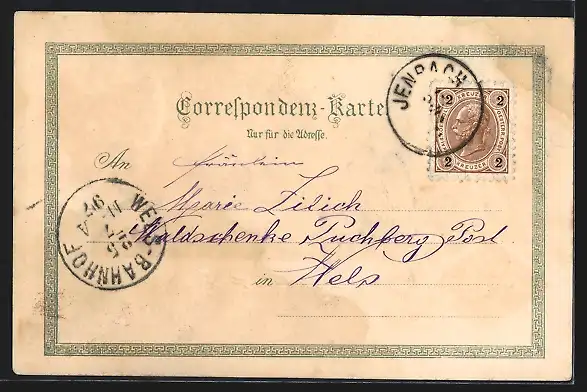 Correspondenz-Karte
Nur für die Adresse.
JENBACH
2 2
2 2
KREUZER
An Fräulein
Marie Zilich
Waldschenke Puchberg Post
in Wels
WELS-BAHNHOF
25
97